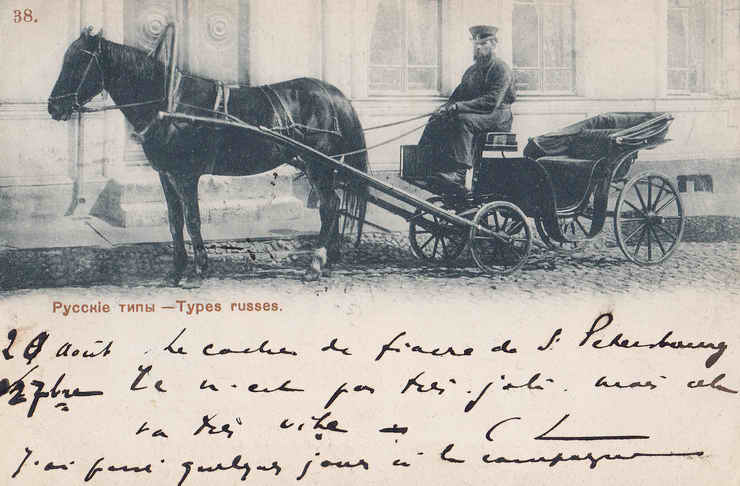 38.
Русскіе типы —Types russes.
Août Le cocher de fiacre de St Petersbourg
7bre Ce n'est pas très joli. mais
va très vite —
J'ai passé quelques jours à la campagne